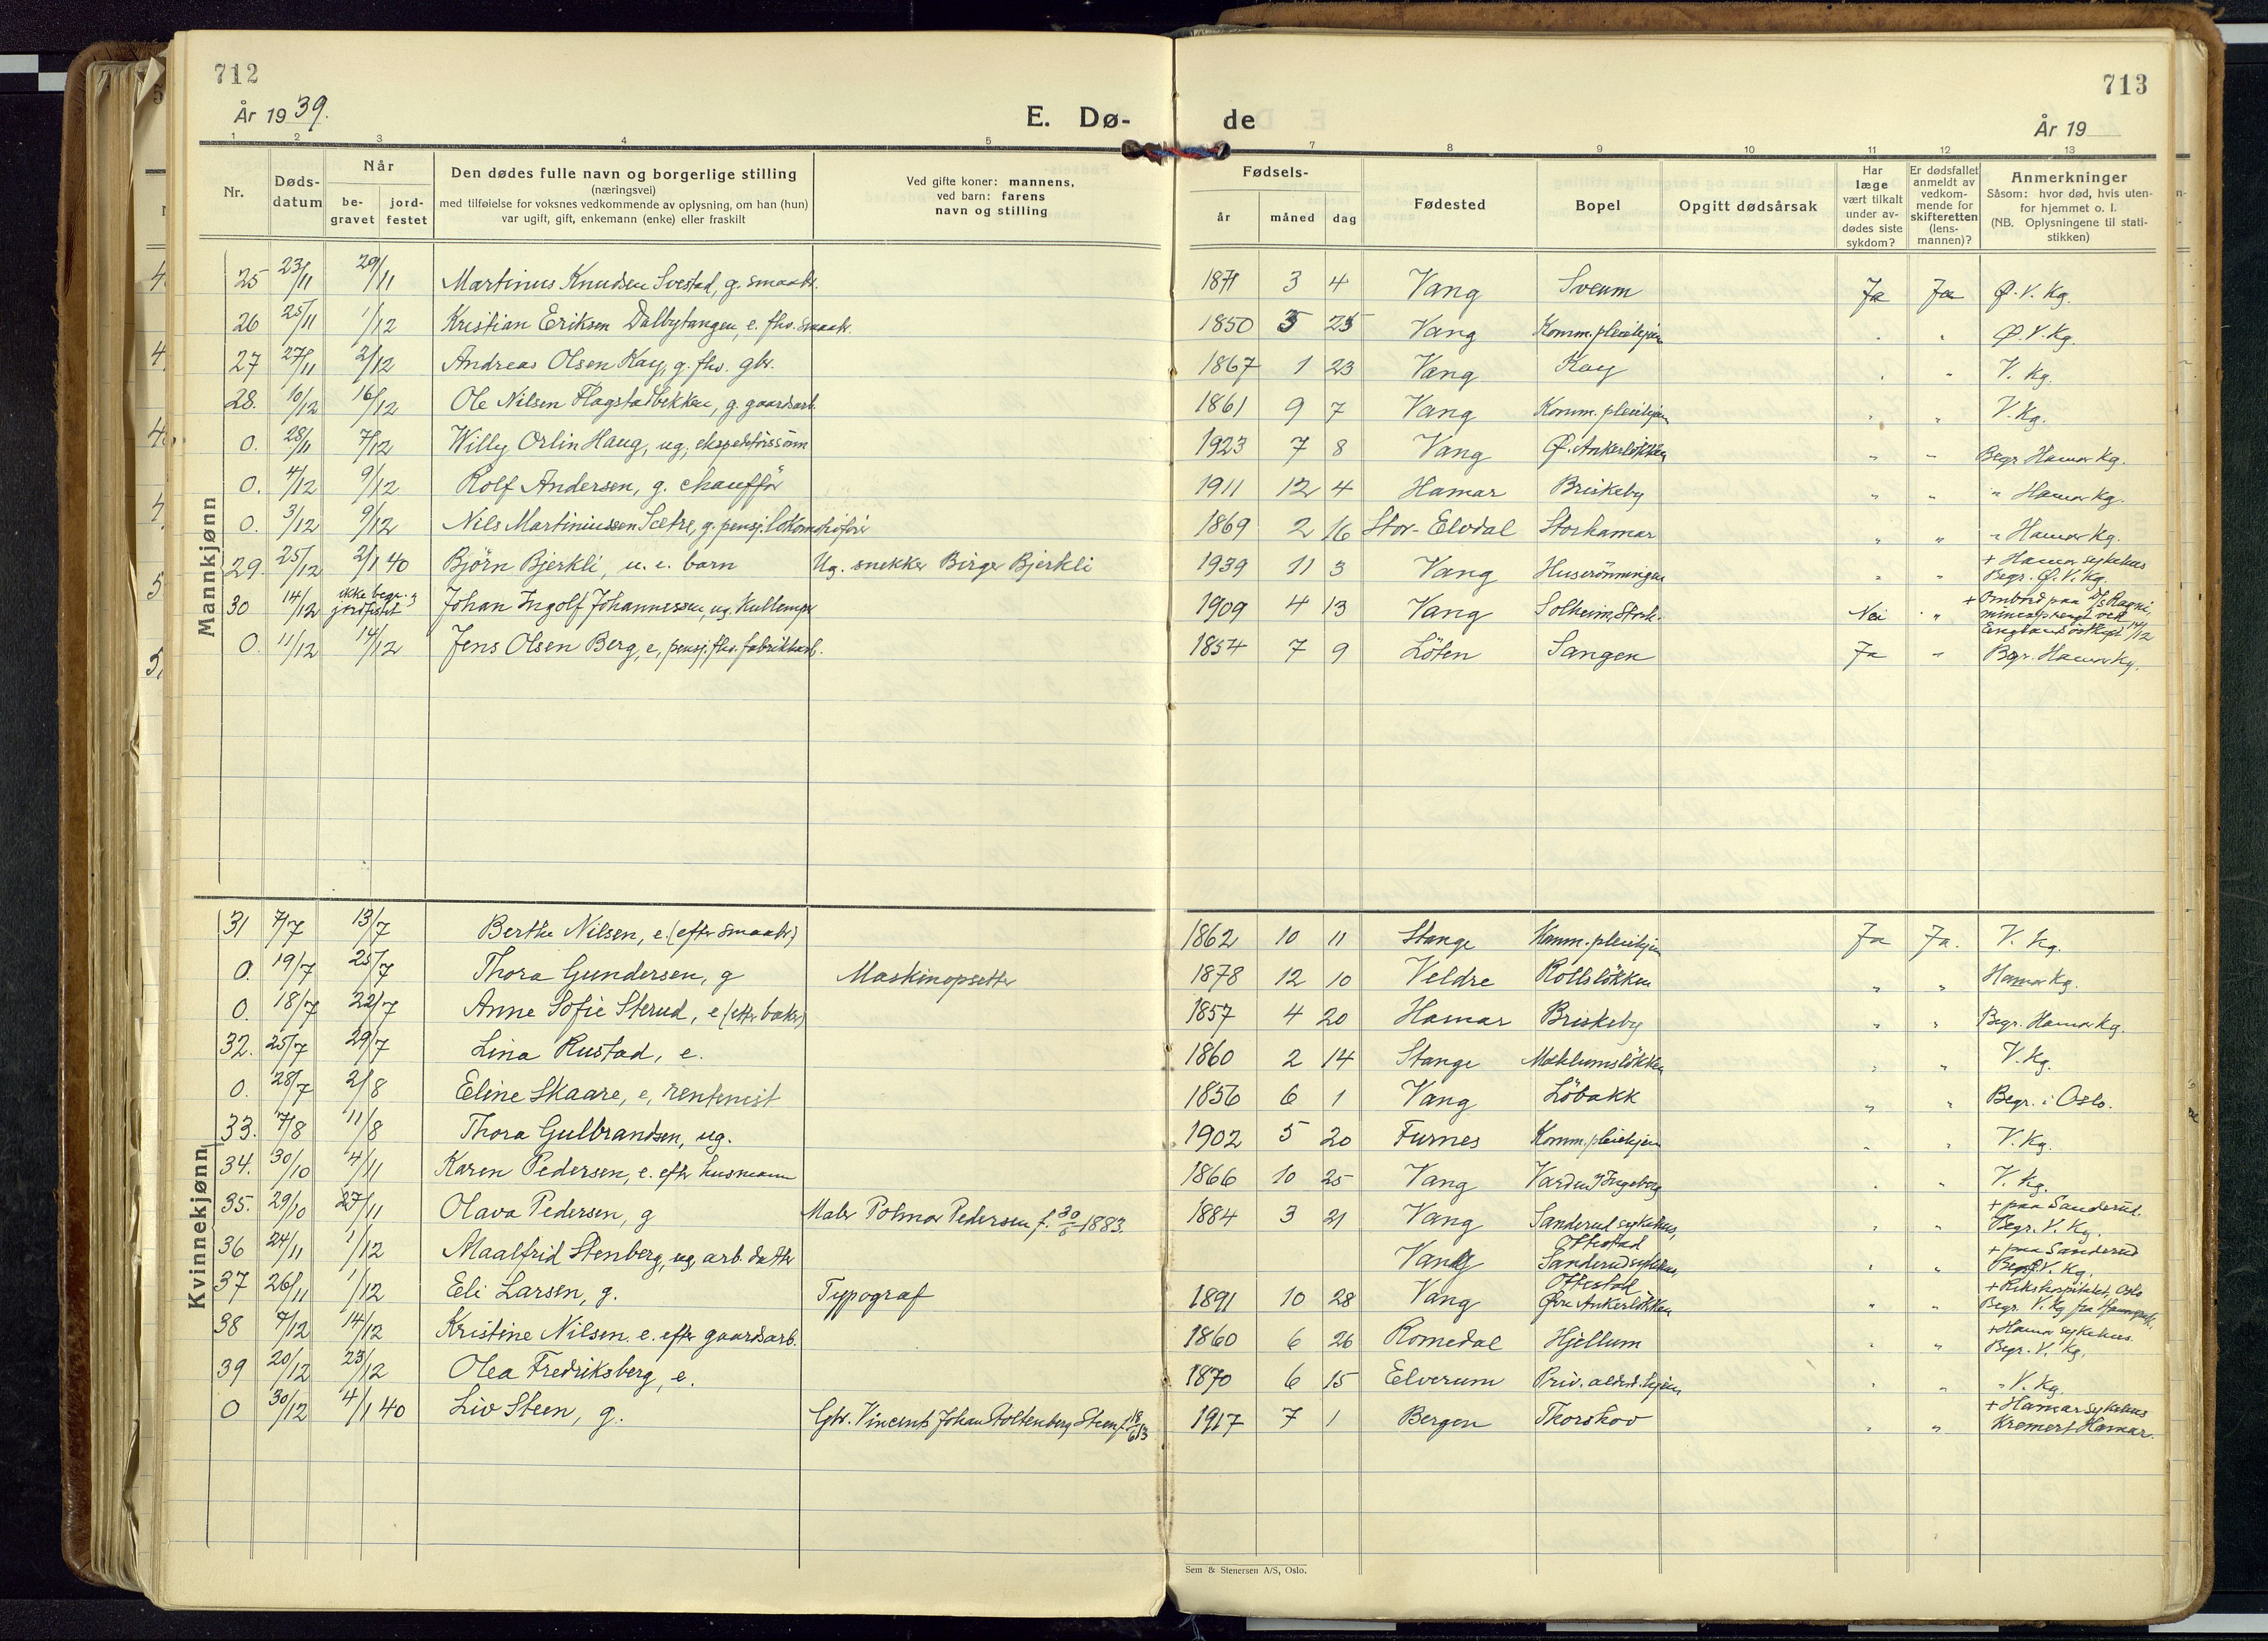 712
År 1939.
E. Dø-
1 2 3 4 5
Nr.
Døds-
datum
Når
be-
gravet
jord-
festet
Den dødes fulle navn og borgerlige stilling
(næringsvei)
med tilføielse for voksnes vedkommende av oplysning, om han (hun)
var ugift, gift, enkemann (enke) eller fraskilt
Ved gifte koner: mannens,
ved barn: farens
navn og stilling
Mannkjønn
25 23/11 29/11 Martinus Knudsen Svestad, g. smaabr.
26 25/11 1/12 Kristian Eriksen Dalbytangen, e. fhv. smaabr.
27 27/11 2/12 Andreas Olsen Kay, g. fhv. gbr.
28. 10/12 16/12 Ole Nilsen Flagstadbekken, g. gaardsarb.
0. 28/11 7/12 Willy Orlin Haug, ug, ekspeditørssønn
0. 4/12 9/12 Rolf Andersen, g. chauffør
0. 3/12 9/12 Nils Martiniussen Sætre, g. pensj. lokomotivfører
29. 25/12 2/1 40 Bjørn Bjerkli, u. e. barn Ug. snekker Birger Bjerkli
30 14/12 ikke begr. jordfestet Johan Ingolf Johannessen, ug. Kullemper
0. 11/12 14/12 Jens Olsen Berg, e, pensj. fhv. fabrikkarb.
Kvinnekjønn
31 7/7 13/7 Berthe Nilsen, e. (efter smaabr)
0. 19/7 25/7 Thora Gundersen, g Maskinopsetter
0. 18/7 22/7 Anne Sofie Sterud, e (efter baker)
32. 25/7 29/7 Lina Rustad, e.
0. 28/7 2/8 Eline Skaare, e, rentenist
33. 7/8 11/8 Thora Gulbrandsen, ug.
34. 30/10 4/11 Karen Pedersen, e. efter husmann
35. 29/10 27/11 Olava Pedersen, g Maler Polmar Pedersen f. 30/6 1883.
36 24/11 1/12 Maalfrid Stenberg, ug, arb. datter
37 26/11 1/12 Eli Larsen, g. Typograf
38 7/12 14/12 Kristine Nilsen. e. efter gaardsarb.
39 20/12 23/12 Olea Fredriksberg, e.
0 30/12 4/1 40 Liv Steen, g. Gbr. Vincents Johan Stoltenberg Steen f. 18/6 13
713
de
År 19
7 8 9 10 11 12 13
Fødsels-
år måned dag
Fødested
Bopel
Opgitt dødsårsak
Har
læge
vært tilkalt
under av-
dødes siste
sykdom?
Er dødsfallet
anmeldt av
vedkom-
mende for
skifteretten
(lens-
mannen)?
Anmerkninger
Såsom: hvor død, hvis uten-
for hjemmet o. l.
(NB. Oplysningene til stati-
stikken)
1871 3 4 Vang Sveum Ja Ja Ø. V. Kg.
1850 5 25 Vang Komm. pleiehjem " " Ø. V. Kg.
1867 1 23 Vang Kay " " V. Kg.
1861 9 7 Vang Komm. pleiehjem " " V. Kg.
1923 7 8 Vang Ø. Ankerløkken " " Begr. Hamar Kg.
1911 12 4 Hamar Briskeby " " " Hamar Kg.
1869 2 16 Stor-Elvdal Storhamar " " " Hamar Kg.
1939 11 3 Vang Huserønningen " " + Hamar sykehus
Begr. Ø. V. Kg.
1909 4 13 Vang Solheim, Storh. Nei " + Ombord paa D/S Ragni,
minesprengt ved
Englands østkyst 14/12
1854 7 9 Løten Sangen Ja " Begr. Hamar Kg.
1862 10 11 Stange Komm. pleiehjem Ja Ja. V. Kg.
1878 12 10 Veldre Rollsløkken " " Hamar Kg.
1857 4 20 Hamar Briskeby " " Begr. Hamar Kg.
1860 2 14 Stange Mæhlumsløkken " " V. Kg.
1856 6 1 Vang Løbakk " " Begr. i Oslo.
1902 5 20 Furnes Komm. pleiehjem " " V. Kg.
1866 10 25 Vang Varden, Ingeberg " " V. Kg.
1884 3 21 Vang Sanderud sykehus,
Ottestad " " + paa Sanderud.
Begr. V. Kg.
Vang Sanderud sykehus,
Ottestad " " + paa Sanderud
Begr. V. Kg.
1891 10 28 Vang Øvre Ankerløkken " " + Rikshospitalet, Oslo
Begr. V. Kg
1860 6 26 Romedal Hjellum " " + Hamar sykehus.
Begr. V. Kg.
1870 6 15 Elverum Priv. aldersd. hjem " " " V. Kg.
1917 7 1 Bergen Thorshov " " + Hamar sykehus
Kremert Hamar.
Sem & Stenersen A/S, Oslo.